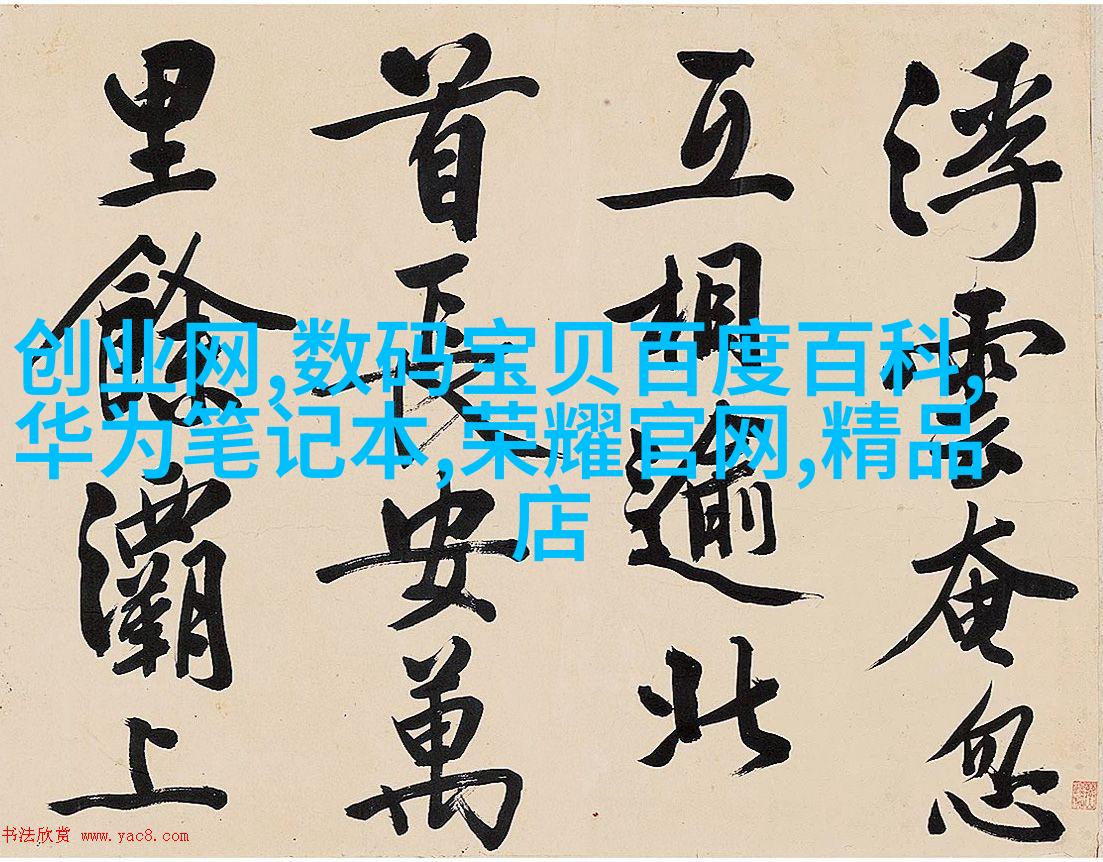 浮雲奄忽
互相逾北
首長安萬
里餘灞上
创业网,数码宝贝百度百科,
华为笔记本,荣耀官网,精品
店
书法欣赏 www.yac8.com